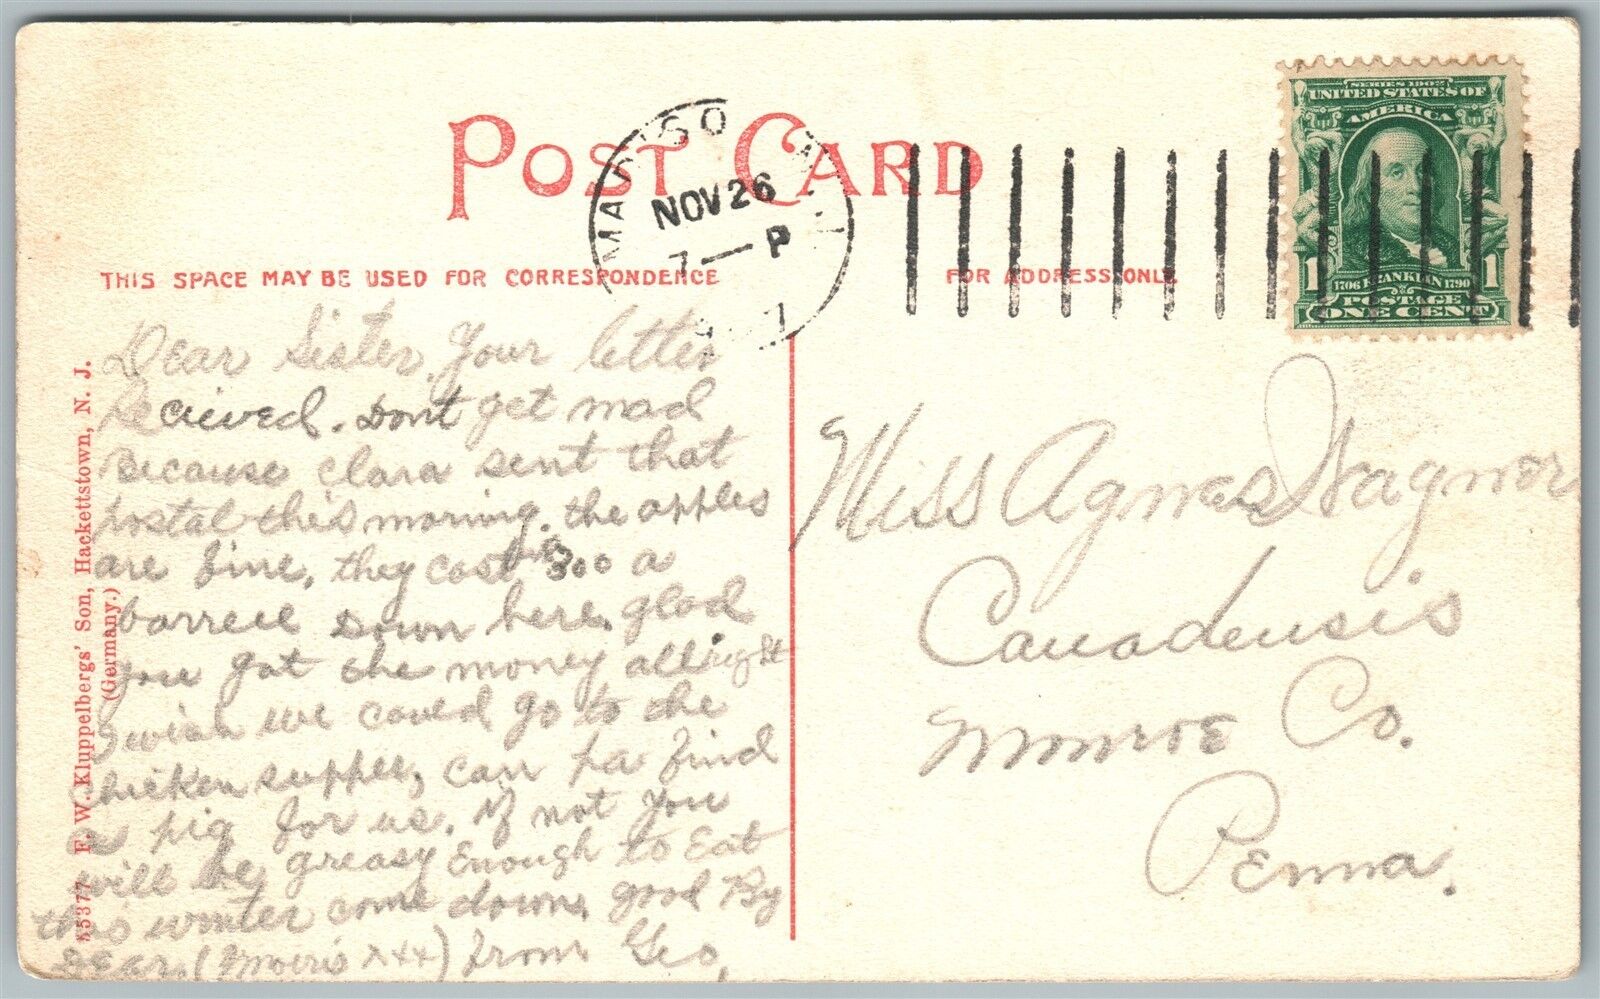 POST CARD
MADISO N.J.
NOV 26
7 — P
SERIES 1902
UNITED STATES OF
AMERICA
1706 FRANKLIN 1790
1 1
POSTAGE
ONE CENT
THIS SPACE MAY BE USED FOR CORRESPONDENCE
FOR ADDRESS ONLY.
Dear Sister, Your letter
Recieved. Dont get mad
Because Clara sent that
postal this morning. the apples
are fine, they cost 300 a
barrell Down here. glad
you got the money allright
I wish we could go to the
chicken supper, can pa find
a pig for us. If not you
will be greasy Enough to Eat
this winter come down, good By
DEar. (Morris xxx) from Geo,
Miss Agnes Wagner
Canadensis
Monroe Co.
Penna.
55377 F. W. Kluppelbergs' Son, Hackettstown, N. J.
(Germany.)